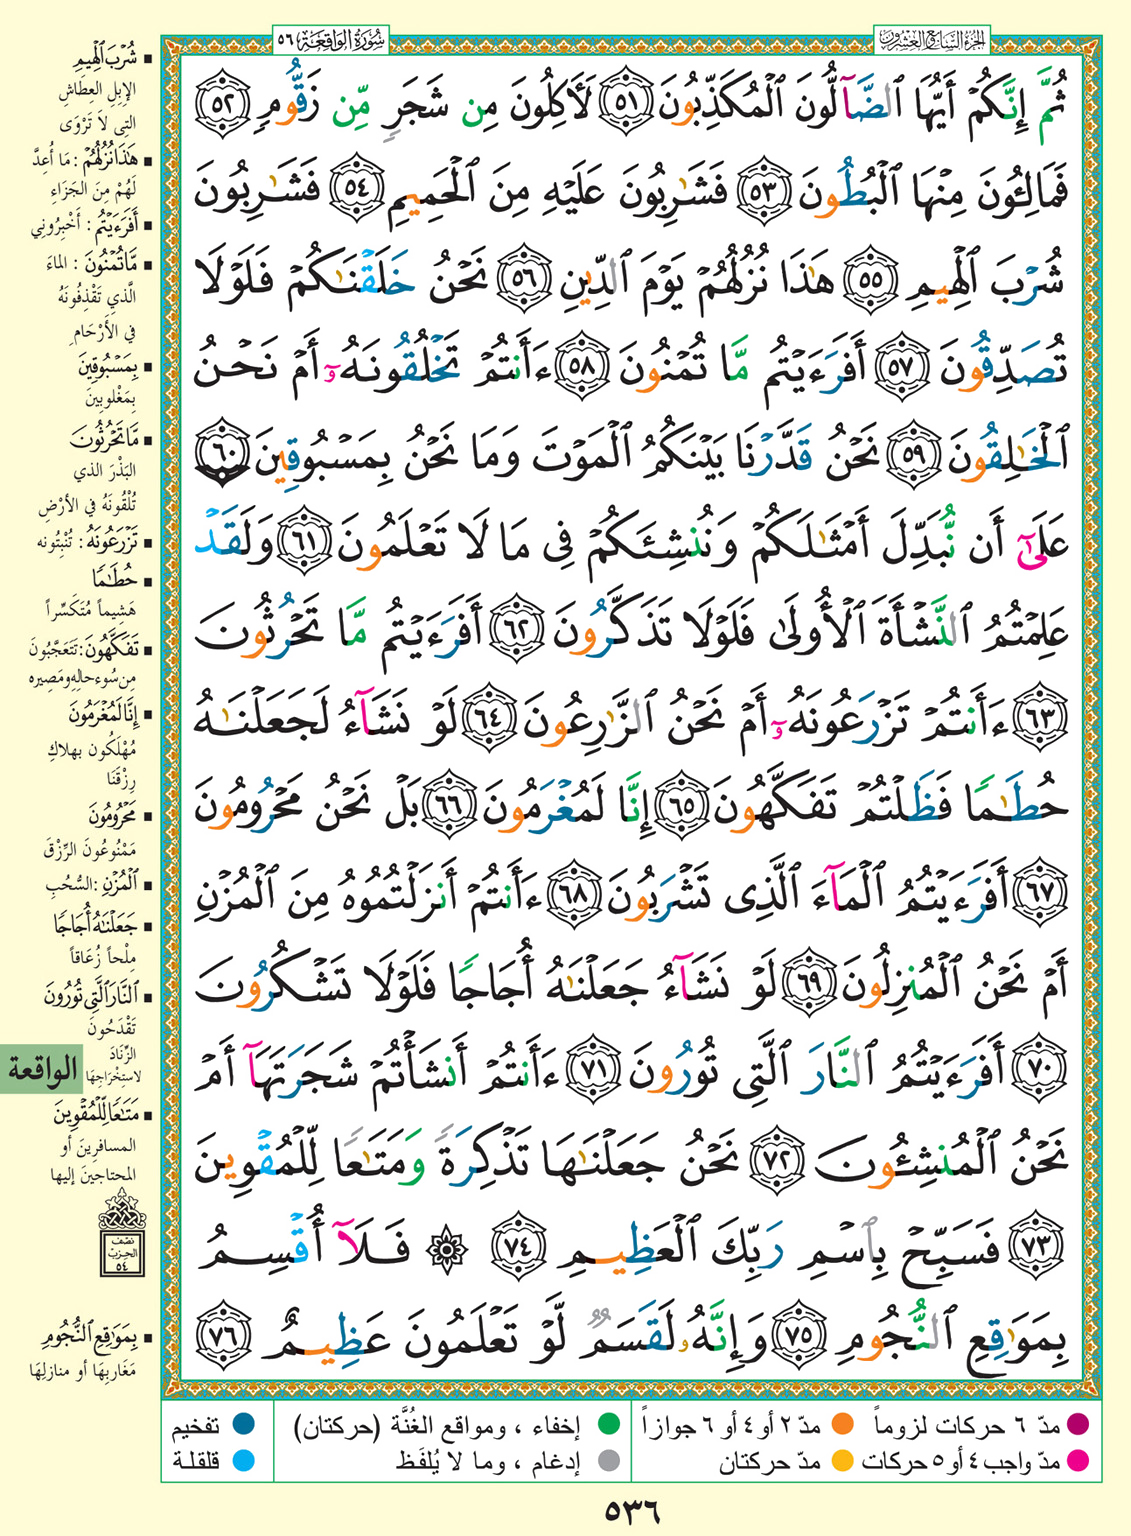 الجزء السابع والعشرون
سُورَةُ الواقِعَة ٥٦
ثُمَّ إِنَّكُمْ أَيُّهَا ٱلضَّآلُّونَ ٱلْمُكَذِّبُونَ ٥١ لَأَكِلُونَ مِن شَجَرٍ مِّن زَقُّومٍ ٥٢
فَمَالِـُٔونَ مِنْهَا ٱلْبُطُونَ ٥٣ فَشَـٰرِبُونَ عَلَيْهِ مِنَ ٱلْحَمِيمِ ٥٤ فَشَـٰرِبُونَ
شُرْبَ ٱلْهِيمِ ٥٥ هَـٰذَا نُزُلُهُمْ يَوْمَ ٱلدِّينِ ٥٦ نَحْنُ خَلَقْنَـٰكُمْ فَلَوْلَا
تُصَدِّقُونَ ٥٧ أَفَرَءَيْتُم مَّا تُمْنُونَ ٥٨ ءَأَنتُمْ تَخْلُقُونَهُۥٓ أَمْ نَحْنُ
ٱلْخَـٰلِقُونَ ٥٩ نَحْنُ قَدَّرْنَا بَيْنَكُمُ ٱلْمَوْتَ وَمَا نَحْنُ بِمَسْبُوقِينَ ٦٠
عَلَىٰٓ أَن نُّبَدِّلَ أَمْثَـٰلَكُمْ وَنُنشِئَكُمْ فِى مَا لَا تَعْلَمُونَ ٦١ وَلَقَدْ
عَلِمْتُمُ ٱلنَّشْأَةَ ٱلْأُولَىٰ فَلَوْلَا تَذَكَّرُونَ ٦٢ أَفَرَءَيْتُم مَّا تَحْرُثُونَ
٦٣ ءَأَنتُمْ تَزْرَعُونَهُۥٓ أَمْ نَحْنُ ٱلزَّٰرِعُونَ ٦٤ لَوْ نَشَآءُ لَجَعَلْنَـٰهُ
حُطَـٰمًا فَظَلْتُمْ تَفَكَّهُونَ ٦٥ إِنَّا لَمُغْرَمُونَ ٦٦ بَلْ نَحْنُ مَحْرُومُونَ
٦٧ أَفَرَءَيْتُمُ ٱلْمَآءَ ٱلَّذِى تَشْرَبُونَ ٦٨ ءَأَنتُمْ أَنزَلْتُمُوهُ مِنَ ٱلْمُزْنِ
أَمْ نَحْنُ ٱلْمُنزِلُونَ ٦٩ لَوْ نَشَآءُ جَعَلْنَـٰهُ أُجَاجًا فَلَوْلَا تَشْكُرُونَ
٧٠ أَفَرَءَيْتُمُ ٱلنَّارَ ٱلَّتِى تُورُونَ ٧١ ءَأَنتُمْ أَنشَأْتُمْ شَجَرَتَهَآ أَمْ
نَحْنُ ٱلْمُنشِـُٔونَ ٧٢ نَحْنُ جَعَلْنَـٰهَا تَذْكِرَةً وَمَتَـٰعًا لِّلْمُقْوِينَ
٧٣ فَسَبِّحْ بِٱسْمِ رَبِّكَ ٱلْعَظِيمِ ٧٤ ۞ فَلَآ أُقْسِمُ
بِمَوَٰقِعِ ٱلنُّجُومِ ٧٥ وَإِنَّهُۥ لَقَسَمٌ لَّوْ تَعْلَمُونَ عَظِيمٌ ٧٦
شُرْبَ ٱلْهِيمِ
الإبِلِ العِطاشِ
التِي لاَ تَرْوَى
هَـٰذَا نُزُلُهُمْ : مَا أُعِدَّ
لَهُمْ مِنَ الجَزَاءِ
أَفَرَءَيْتُم : أَخْبِرُونِي
مَّا تُمْنُونَ : الماءَ
الَّذِي تَقْذِفُونَهُ
فِي الأَرْحَامِ
بِمَسْبُوقِينَ
بِمَغْلُوبِينَ
مَّا تَحْرُثُونَ
البَذْرَ الذي
تُلْقُونَهُ فِي الأرْضِ
تَزْرَعُونَهُ : تُنْبِتُونه
حُطَـٰمًا
هَشِيماً مُتَكَسِّراً
تَفَكَّهُونَ : تَتَعَجَّبُونَ
مِن سُوء حالِهِ ومَصِيره
إِنَّا لَمُغْرَمُونَ
مُهْلَكُون بهلاكِ
رِزْقَنَا
مَحْرُومُونَ
مَمْنُوعُونَ الرِّزْقَ
ٱلْمُزْنِ : السُّحُبِ
جَعَلْنَـٰهُ أُجَاجًا
مِلْحاً زُعَاقاً
ٱلنَّارَ ٱلَّتِي تُورُونَ
تَقْدَحُونَ
الزِّنَادَ
لاسْتِخْرَاجِهَا
الواقعة
مَتَـٰعًا لِّلْمُقْوِينَ
المسافرِينَ أو
المحتاجينَ إليها
نصف
الحزب
٥٤
بِمَوَٰقِعِ ٱلنُّجُومِ
مَغَاربِهَا أو منازِلِهَا
مدّ ٦ حركات لزوماً
مدّ ٢ أو ٤ أو ٦ جوازاً
إخفاء ، ومواقع الغُنَّة (حركتان)
تفخيم
مدّ واجب ٤ أو ٥ حركات
مدّ حركتان
إدغام ، وما لا يُلفَظ
قلقلة
٥٣٦